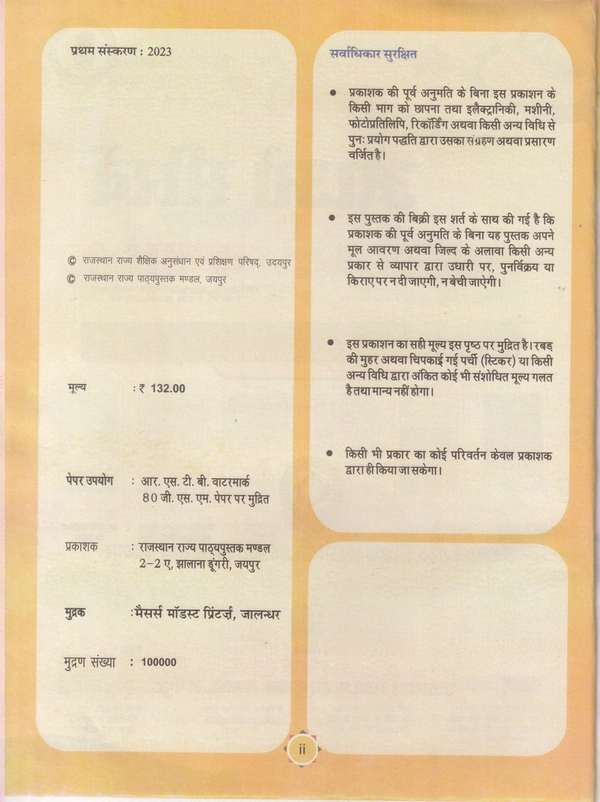 प्रथम संस्करण : 2023
© राजस्थान राज्य शैक्षिक अनुसंधान एवं प्रशिक्षण परिषद्, उदयपुर
© राजस्थान राज्य पाठ्यपुस्तक मण्डल, जयपुर
मूल्य : ₹ 132.00
पेपर उपयोग : आर. एस. टी. बी. वाटरमार्क
80 जी. एस. एम. पेपर पर मुद्रित
प्रकाशक : राजस्थान राज्य पाठ्यपुस्तक मण्डल
2–2 ए, झालाना डूंगरी, जयपुर
मुद्रक : मैसर्स मॉडस्ट प्रिंटर्ज़, जालन्धर
मुद्रण संख्या : 100000
सर्वाधिकार सुरक्षित
• प्रकाशक की पूर्व अनुमति के बिना इस प्रकाशन के
किसी भाग को छापना तथा इलैक्ट्रानिकी, मशीनी,
फोटोप्रतिलिपि, रिकॉर्डिंग अथवा किसी अन्य विधि से
पुनः प्रयोग पद्धति द्वारा उसका संग्रहण अथवा प्रसारण
वर्जित है।
• इस पुस्तक की बिक्री इस शर्त के साथ की गई है कि
प्रकाशक की पूर्व अनुमति के बिना यह पुस्तक अपने
मूल आवरण अथवा जिल्द के अलावा किसी अन्य
प्रकार से व्यापार द्वारा उधारी पर, पुनर्विक्रय या
किराए पर न दी जाएगी, न बेची जाऐगी।
• इस प्रकाशन का सही मूल्य इस पृष्ठ पर मुद्रित है। रबड़
की मुहर अथवा चिपकाई गई पर्ची (स्टिकर) या किसी
अन्य विधि द्वारा अंकित कोई भी संशोधित मूल्य गलत
है तथा मान्य नहीं होगा।
• किसी भी प्रकार का कोई परिवर्तन केवल प्रकाशक
द्वारा ही किया जा सकेगा।
ii